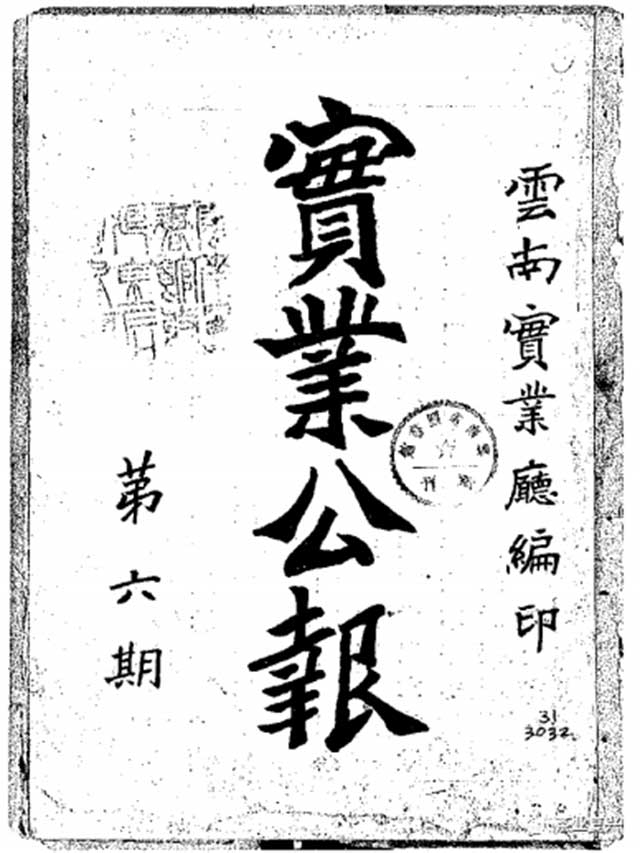 雲南實業廳編印
實業公報
第六期
31
3032